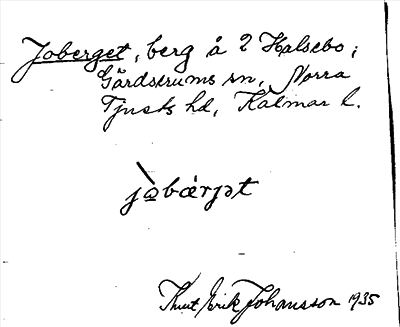 Joberget, berg å 2 Halsebo;
Gärdserums sn, Norra
Tjusts hd, Kalmar l.
jò̲bǽrjət
Knut Erik Johansson 1935